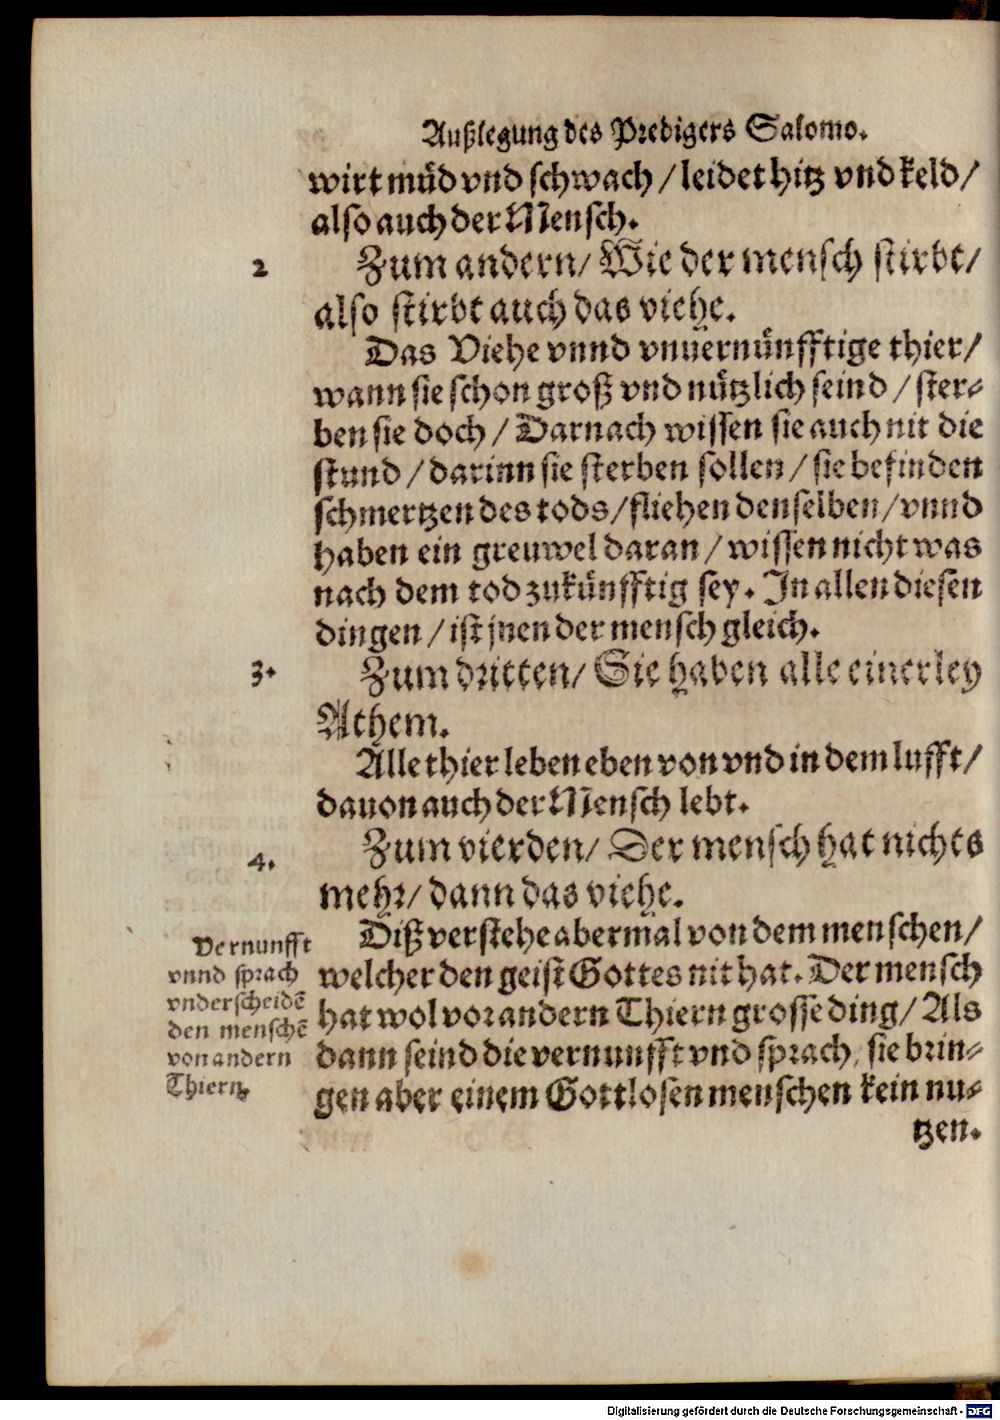 Außlegung des Predigers Salomo.
wirt müd vnd schwach / leidet hitz vnd keld /
also auch der Mensch.
2 Zum andern / Wie der mensch stirbt /
also stirbt auch das viehe.
Das Viehe vnnd vnuernünfftige thier /
wann sie schon groß vnd nützlich seind / ster-
ben sie doch / Darnach wissen sie auch nit die
stund / darinn sie sterben sollen / sie befinden
schmertzen des tods / fliehen denselben / vnnd
haben ein greuwel daran / wissen nicht was
nach dem tod zukünfftig sey. In allen diesen
dingen / ist jnen der mensch gleich.
3. Zum dritten / Sie haben alle einerley
Athem.
Alle thier leben eben von vnd in dem lufft /
dauon auch der Mensch lebt.
4. Zum vierden / Der mensch hat nichts
mehr / dann das viehe.
Diß verstehe abermal von dem menschen /
welcher den geist Gottes nit hat. Der mensch
hat wol vor andern Thiern grosse ding / Als
dann seind die vernunfft vnd sprach, sie brin-
gen aber einem Gottlosen menschen kein nu-
tzen.
Vernunfft
vnnd sprach
vnderscheidē
den menschē
von andern
Thiern.
Digitalisierung gefördert durch die Deutsche Forschungsgemeinschaft - DFG